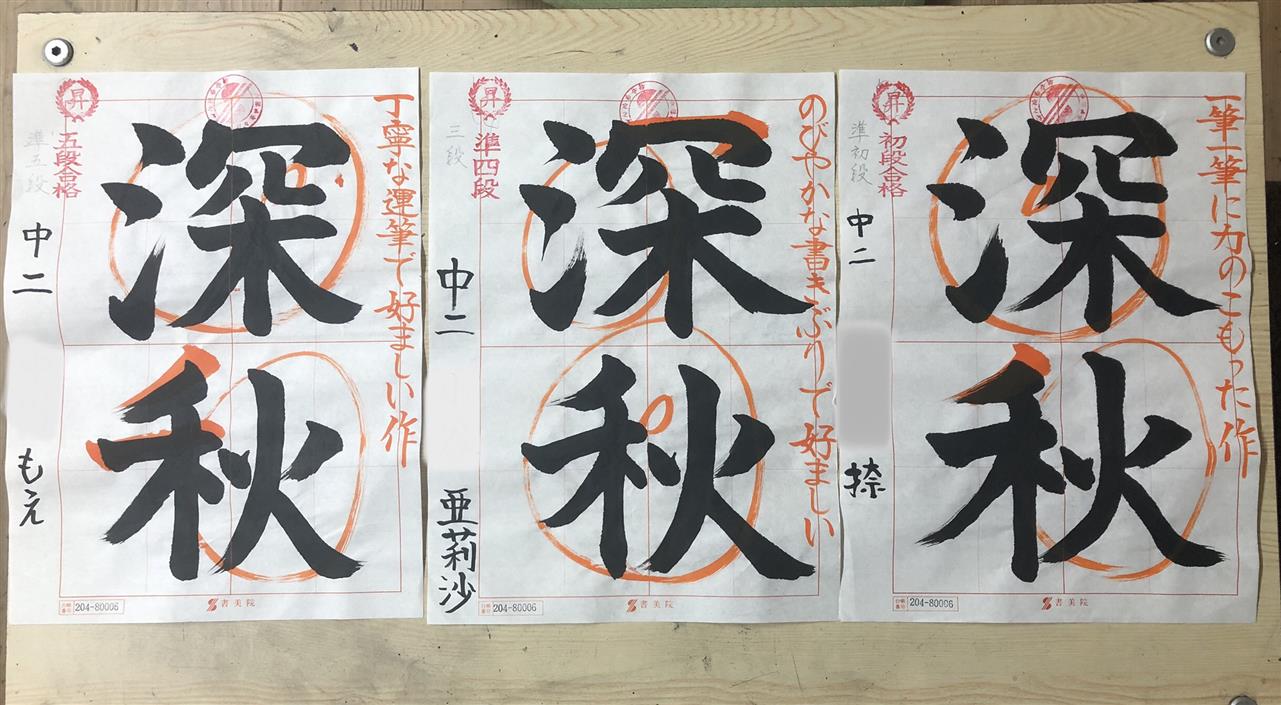 丁寧な運筆で好ましい作
深秋
昇
五段合格
準五段
中二
もえ
204-80006
書美院
のびやかな書きぶりで好ましい
深秋
昇
準四段
三段
中二
亜莉沙
204-80006
書美院
一筆一筆に力のこもった作
深秋
昇
初段合格
準初段
中二
捺
204-80006
書美院